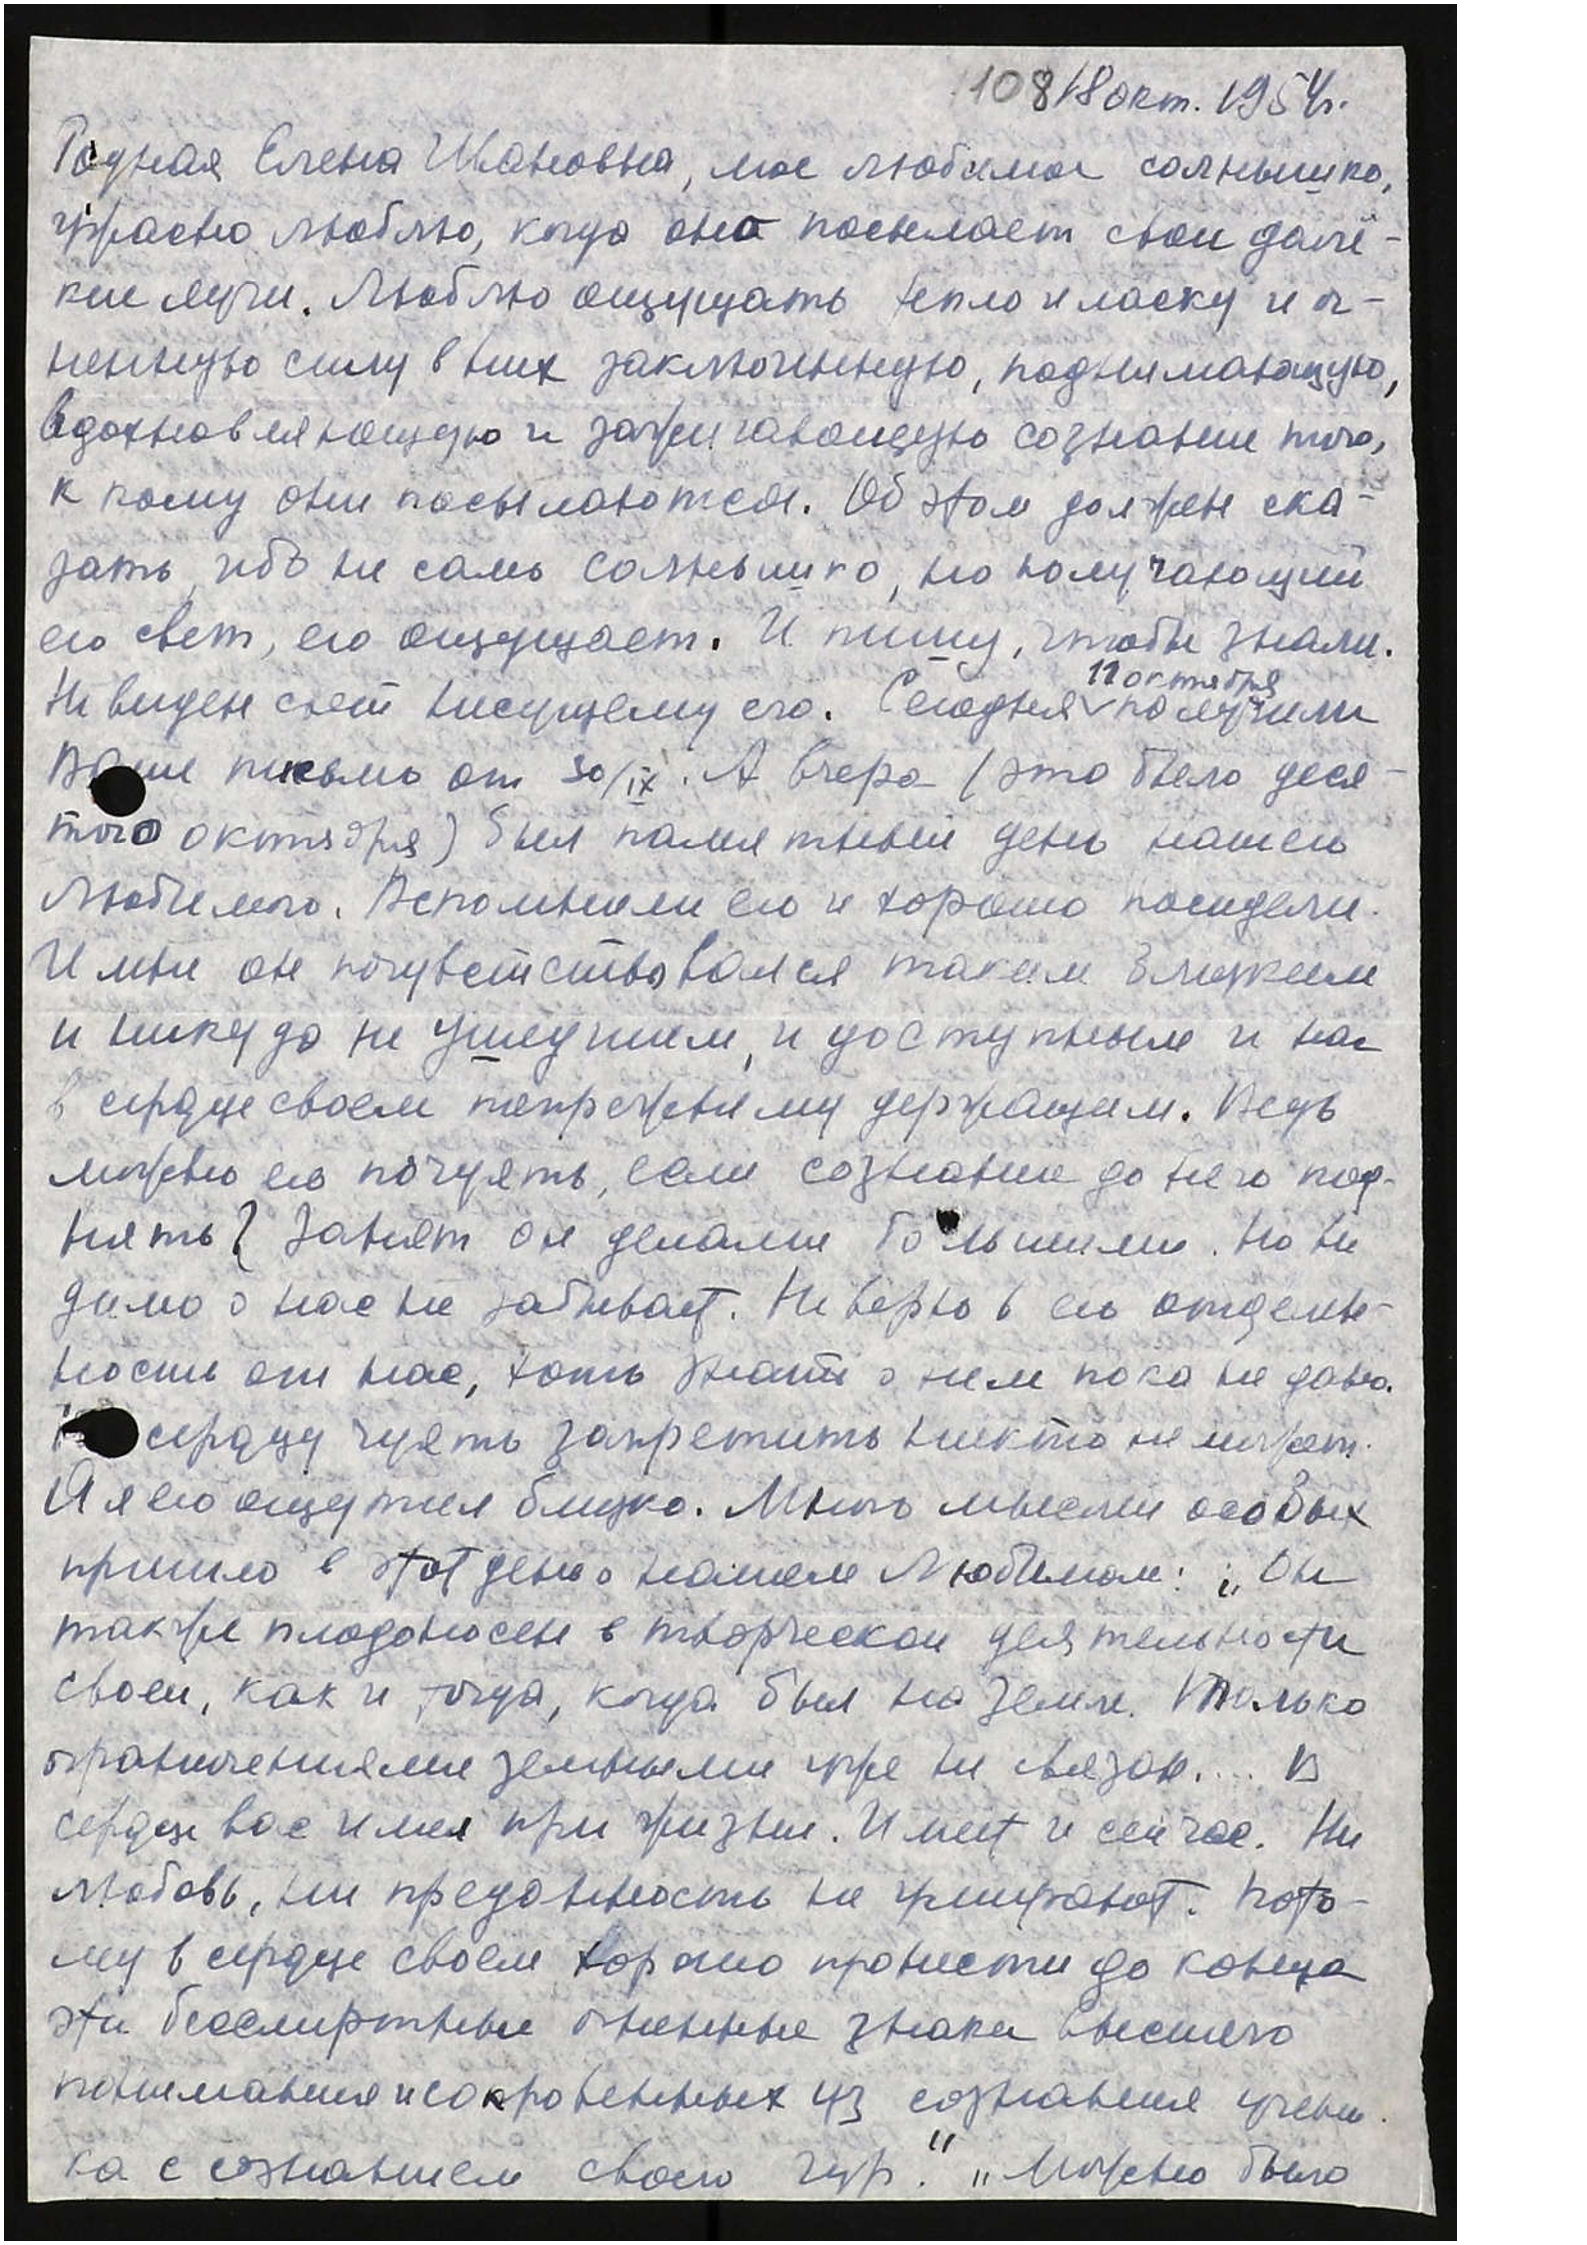 108 18 окт. 1954 г.
Родная Елена Ивановна, мое любимое солнышко,
ужасно люблю, когда оно посылает свои далё-
кие лучи. Люблю ощущать тепло и ласку и ог-
ненную силу в них заключенную, поднимающую,
вдохновляющую и зажигающую сознание того,
к кому они посылаются. Об этом должен ска-
зать, ибо не само солнышко, но получающий
его свет, его ощущает. И пишу, чтобы знали.
Не виден свет несущему его. Сегодня 11 октября получили
Ваше письмо от 30/IX. А вчера (это было деся-
того октября) был памятный день нашего
Любимого. Вспомнили его и хорошо посидели.
И мне он почувствовался таким близким
и никуда не ушедшим, и доступным и нас
в сердце своем попрежнему держащим. Ведь
можно его почуять, если сознание до него под-
нять. Занят он делами большими. Но ви-
димо о нас не забывает. Не верю в его отделен-
ность от нас, хоть знать о нем пока не дано.
Но сердцу чуять запретить никто не может.
И я его ощутил близко. Много мыслей особых
пришло в этот день о нашем Любимом: „Он
также плодоносен в творческой деятельности
своей, как и тогда, когда был на земле. Только
ограничениями земными уже не связан.... В
сердце вас имел при жизни. Имеет и сейчас. Ни
любовь, ни преданность не умирают. Пото-
му в сердце своем хорошо пронести до конца
эти бессмертные огненные знаки высшего
понимания и сокровенных уз сознания учени-
ка с сознанием своего гуру." „Можно было